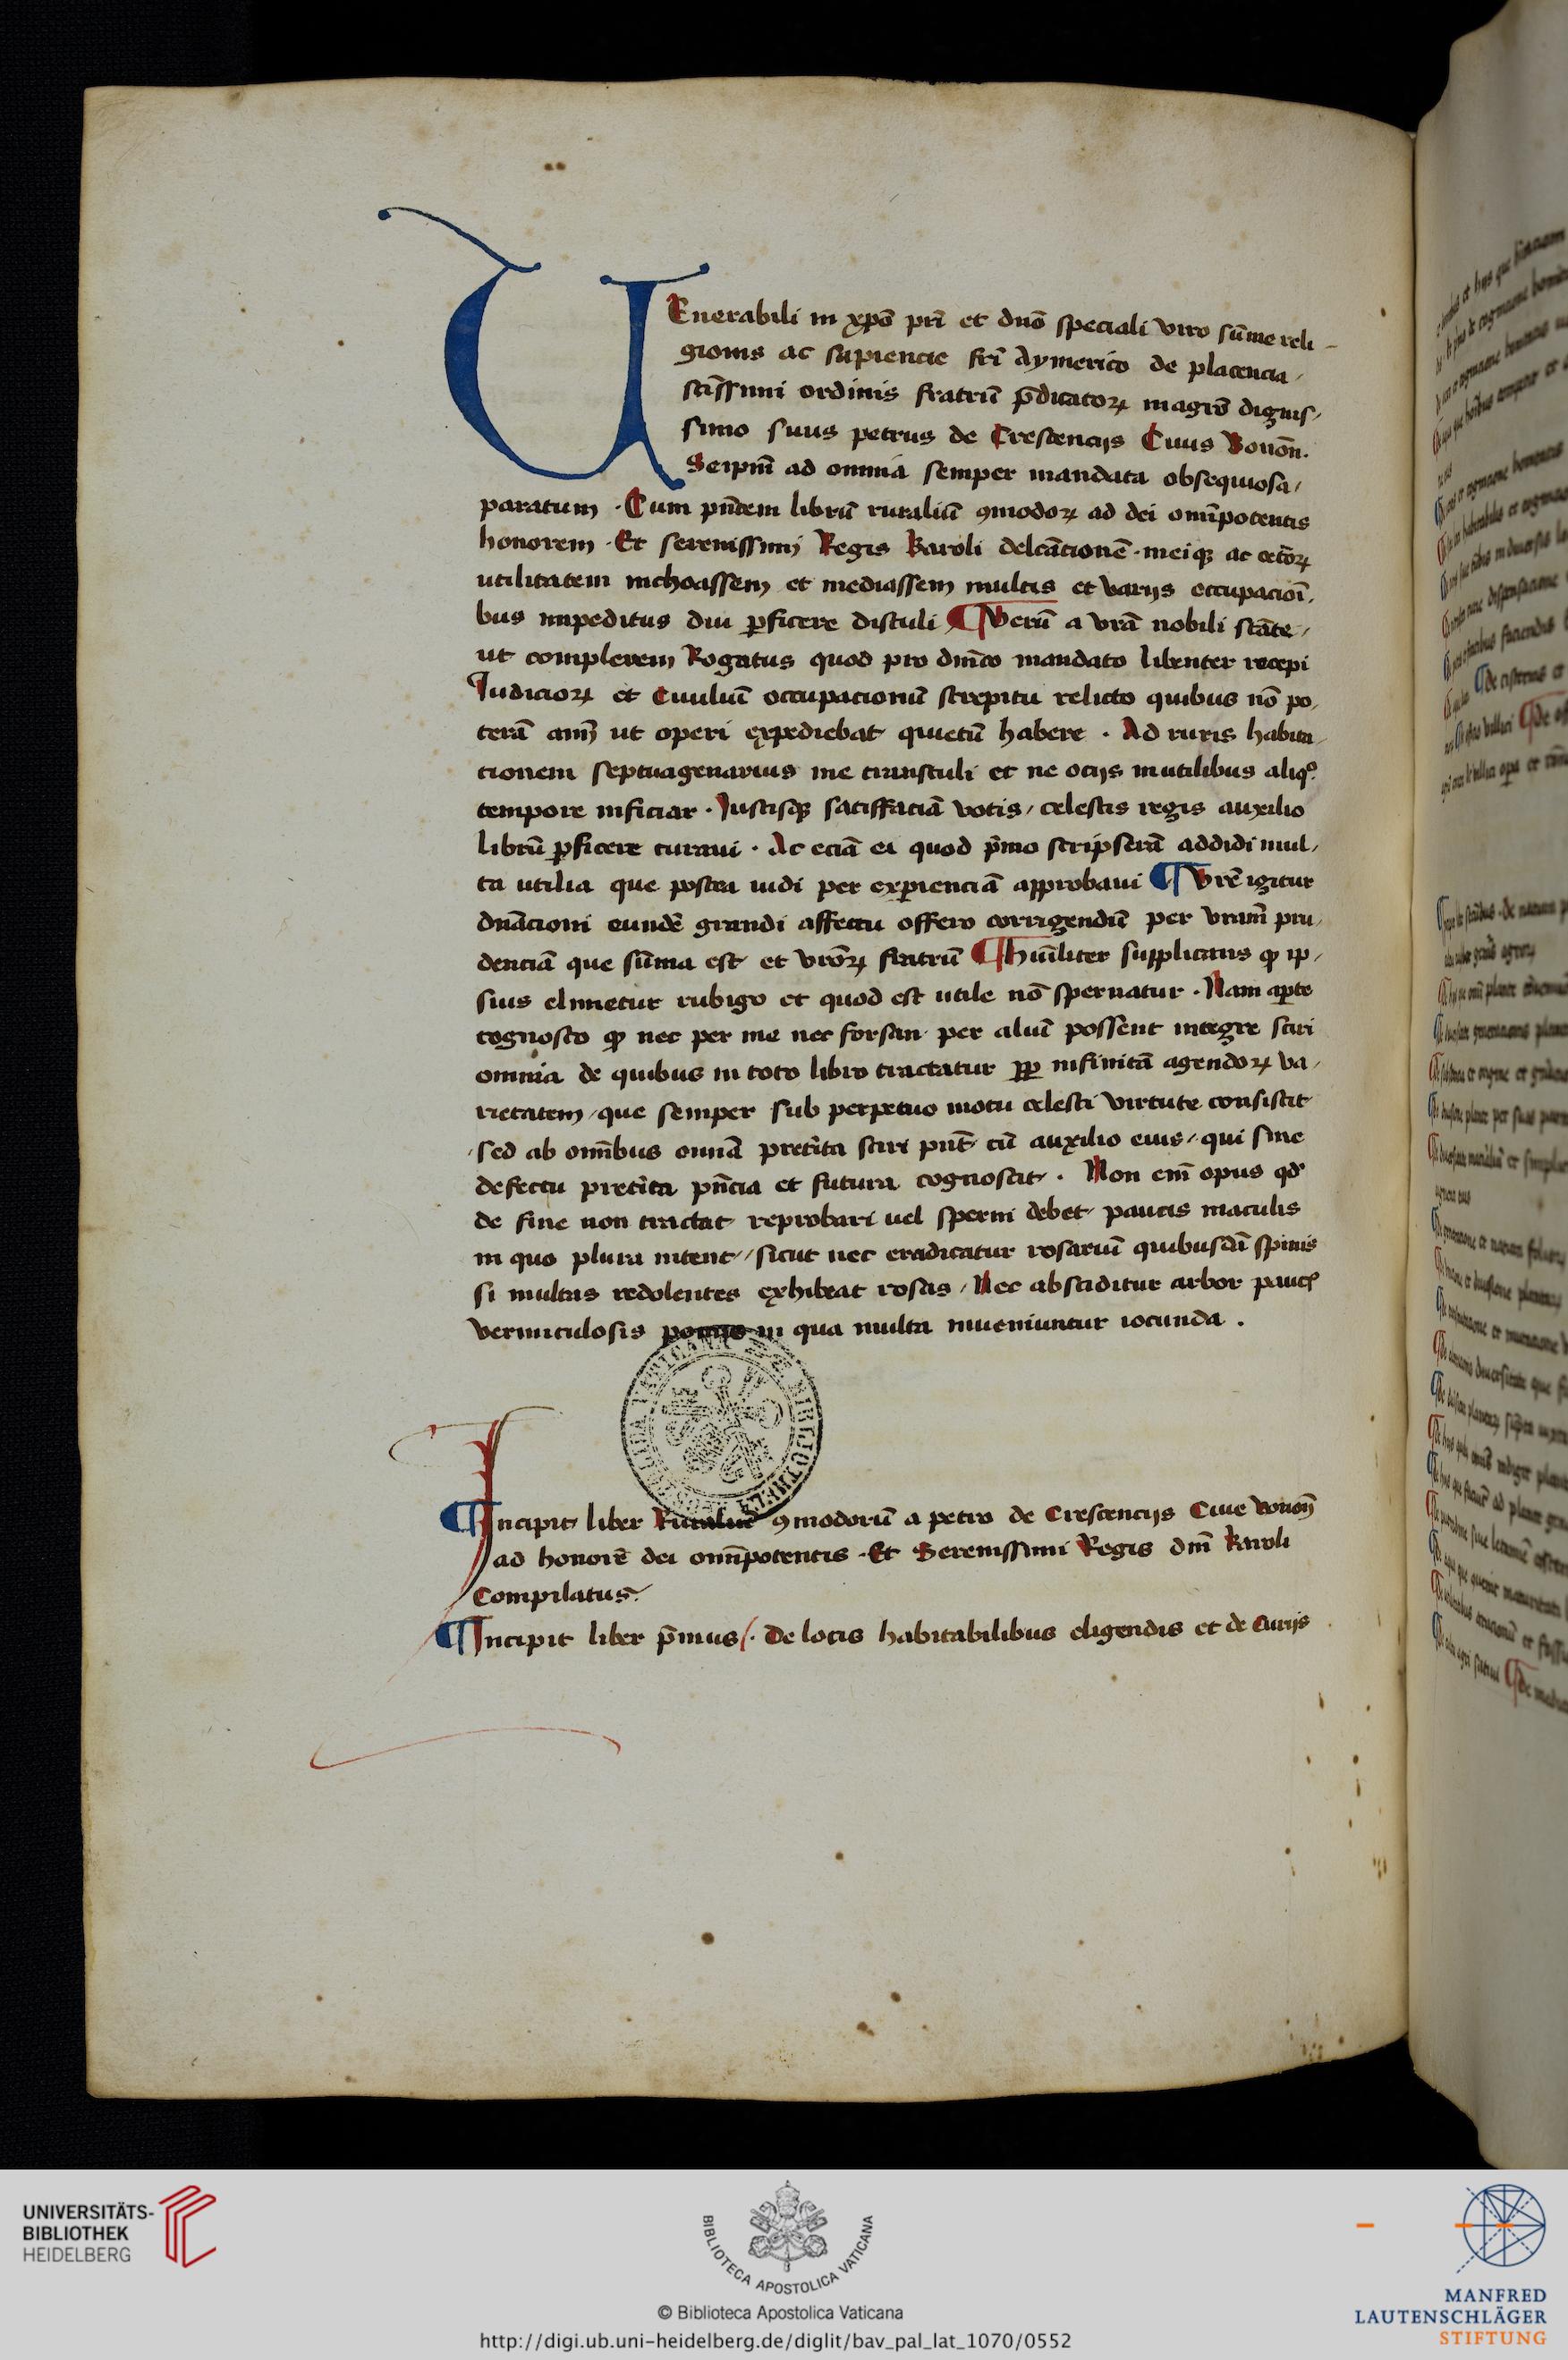 VEnerabili in xp̄o pr̄i et dn̄o speciali viro sūme reli-
gionis ac sapiencie fr̄i Aymerico de placencia /
sc̄issimi ordinis fratrū p̄dicatoꝝ magr̄o dignis/
simo suus petrus de Crescencijs Ciuis Bonon̄.
Seipm̄ ad omnia semper mandata obsequiosa /
paratum · Cum pn̄tem librū ruraliū ꝯmodoꝝ ad dei om̄ipotentis
honorem · Et serenissimi Regis Karoli delcācionē · meiqꝫ ac cet̄oꝝ
utilitatem inchoassem et mediassem multis et varijs occupacioī,
bus impeditus diu ꝑficere distuli ¶ Verū a vrā nobili sc̄ate /
ut complerem Rogatus quod pro dn̄ico mandato libenter recepi
Iudicioꝝ et Ciuiliū occupacionū strepitu relicto quibus nō po,
terā aīm ut operi expediebat quietū habere · Ad ruris habita
cionem septuagenarius me transtuli et ne ocijs inutilibus aliqͦ
tempore inficiar · Iustisqꝫ satisfaciā votis / celestis regis auxilio
librū ꝑficere curaui · Ac eciā ei quod p̄mo scripserā addidi mul/
ta utilia que postea uidi per exꝑienciā approbaui ¶ Vrē igitur
dn̄acioni eundē grandi affectu offero corrigendū per vram̄ pru,
denciā que sūma est et vrōꝝ fratrū ¶ Hūiliter supplicans ꝙ ip/
sius elimetur rubigo et quod est utile nō spernatur · Nam aꝑte
cognosco ꝙ nec per me nec forsan per aliū possent integre sciri
omnia de quibus in toto libro tractatur ꝓp infinitā agendoꝝ va/
rietatem / que semper sub perpetuo motu celesti virtute consistit
sed ab om̄ibus omnā pret̄ita sciri pn̄t cū auxilio eius / qui sine
defectu pret̄ita pn̄cia et futura cognoscit · Non em̄ opus qd̄
de fine non tractat reprobari uel sperni debet paucis maculis
in quo plura nitent // sicut nec eradicatur rosariū quibusdā spinis
si multas redolentes exhibeat rosas / Nec absciditur arbor paucꝭ
vermiculosis pomis in qua multa inueniuntur iocunda .
¶ Incipit liber Ruraliū ꝯmodorū a petro de Crescencijs Ciue bonon̄
ad honorē dei om̄ipotentis · Et Serenissimi Regis dn̄i Karoli
Compilatus
¶ Incipit liber p̄mus /. De locis habitabilibus eligendis et de Curijs
UNIVERSITÄTS-
BIBLIOTHEK
HEIDELBERG
BIBLIOTECA APOSTOLICA VATICANA
© Biblioteca Apostolica Vaticana
http://digi.ub.uni-heidelberg.de/diglit/bav_pal_lat_1070/0552
MANFRED
LAUTENSCHLÄGER
STIFTUNG